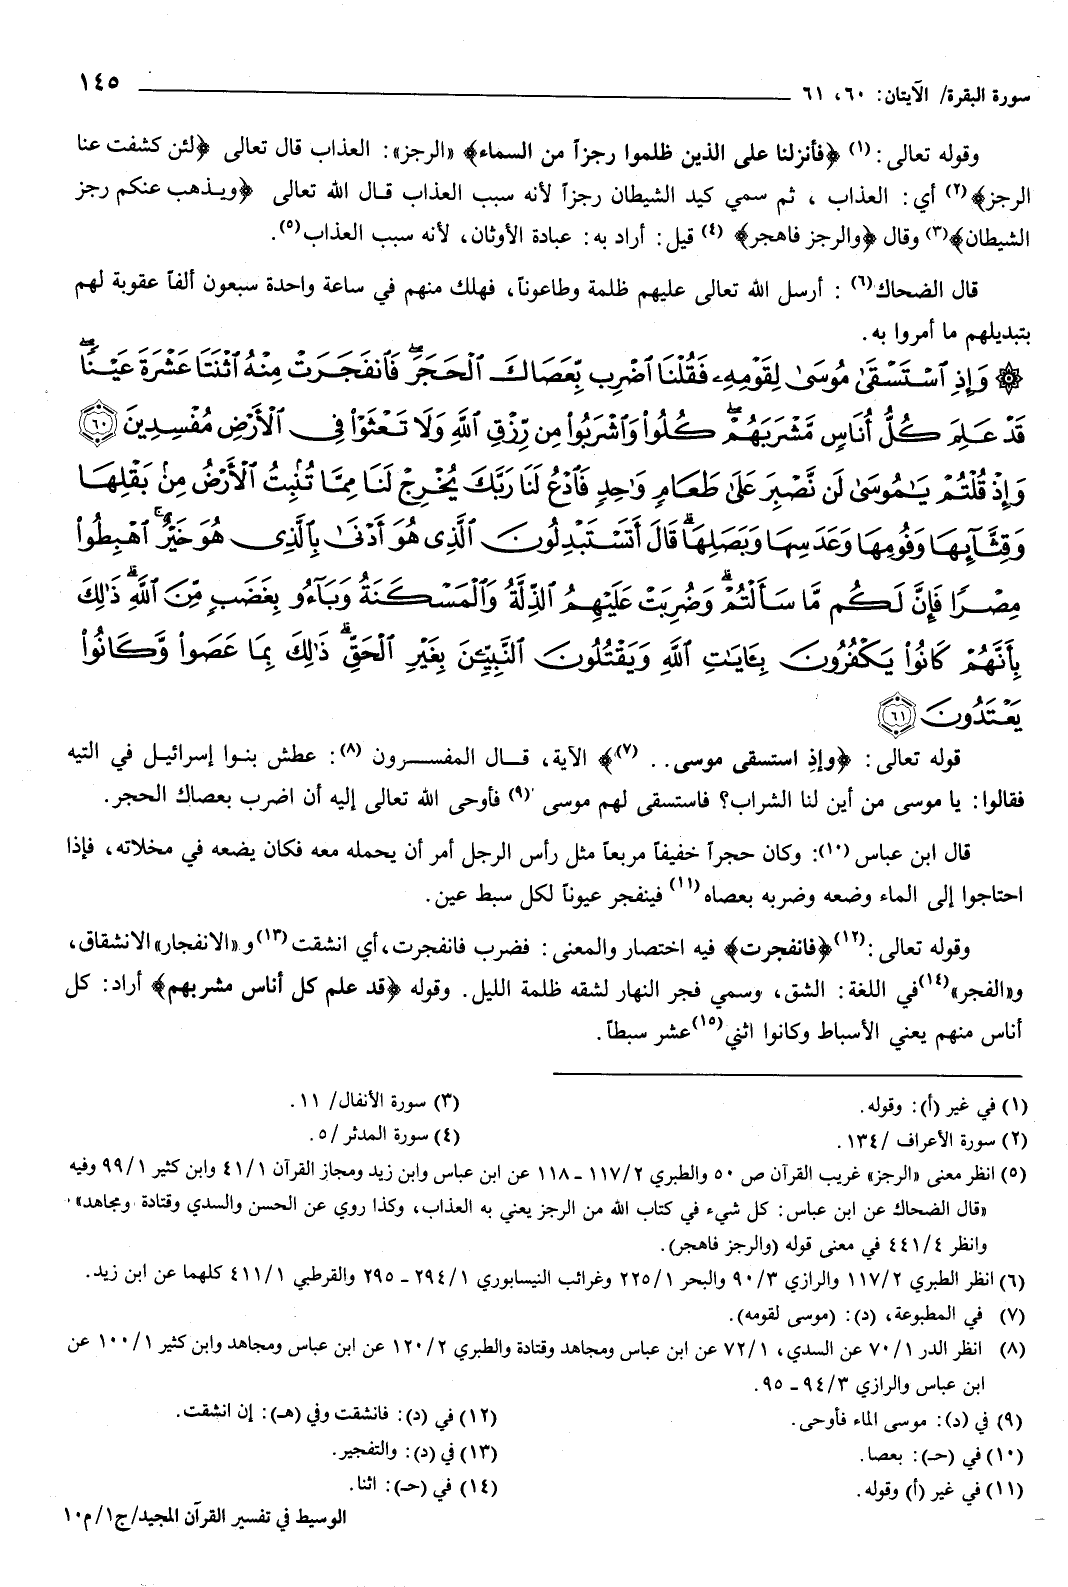 سورة البقرة/ الآيتان: ٦٠، ٦١ ١٤٥
وقوله تعالى: (١) ﴿فأنزلنا على الذين ظلموا رجزاً من السماء﴾ «الرجز»: العذاب قال تعالى ﴿لئن كشفت عنا
الرجز﴾(٢) أي: العذاب ، ثم سمي كيد الشيطان رجزاً لأنه سبب العذاب قال الله تعالى ﴿ويذهب عنكم رجز
الشيطان﴾(٣) وقال ﴿والرجز فاهجر﴾ (٤) قيل: أراد به: عبادة الأوثان، لأنه سبب العذاب(٥).
قال الضحاك(٦) : أرسل الله تعالى عليهم ظلمة وطاعوناً، فهلك منهم في ساعة واحدة سبعون ألفاً عقوبة لهم
بتبديلهم ما أمروا به.
۞ وَإِذِ ٱسْتَسْقَىٰ مُوسَىٰ لِقَوْمِهِۦ فَقُلْنَا ٱضْرِب بِّعَصَاكَ ٱلْحَجَرَۖ فَٱنفَجَرَتْ مِنْهُ ٱثْنَتَا عَشْرَةَ عَيْنًاۖ
قَدْ عَلِمَ كُلُّ أُنَاسٍ مَّشْرَبَهُمْۖ كُلُوا۟ وَٱشْرَبُوا۟ مِن رِّزْقِ ٱللَّهِ وَلَا تَعْثَوْا۟ فِى ٱلْأَرْضِ مُفْسِدِينَ ﴿٦٠﴾
وَإِذْ قُلْتُمْ يَـٰمُوسَىٰ لَن نَّصْبِرَ عَلَىٰ طَعَامٍ وَٰحِدٍ فَٱدْعُ لَنَا رَبَّكَ يُخْرِجْ لَنَا مِمَّا تُنۢبِتُ ٱلْأَرْضُ مِنۢ بَقْلِهَا
وَقِثَّآئِهَا وَفُومِهَا وَعَدَسِهَا وَبَصَلِهَاۖ قَالَ أَتَسْتَبْدِلُونَ ٱلَّذِى هُوَ أَدْنَىٰ بِٱلَّذِى هُوَ خَيْرٌۚ ٱهْبِطُوا۟
مِصْرًا فَإِنَّ لَكُم مَّا سَأَلْتُمْۗ وَضُرِبَتْ عَلَيْهِمُ ٱلذِّلَّةُ وَٱلْمَسْكَنَةُ وَبَآءُو بِغَضَبٍ مِّنَ ٱللَّهِۗ ذَٰلِكَ
بِأَنَّهُمْ كَانُوا۟ يَكْفُرُونَ بِـَٔايَـٰتِ ٱللَّهِ وَيَقْتُلُونَ ٱلنَّبِيِّـۧنَ بِغَيْرِ ٱلْحَقِّۗ ذَٰلِكَ بِمَا عَصَوا۟ وَّكَانُوا۟
يَعْتَدُونَ ﴿٦١﴾
قوله تعالى: ﴿وإذِ استسقى موسى.. (٧)﴾ الآية، قال المفسرون (٨): عطش بنوا إسرائيل في التيه
فقالوا: يا موسى من أين لنا الشراب؟ فاستسقى لهم موسى (٩) فأوحى الله تعالى إليه أن اضرب بعصاك الحجر.
قال ابن عباس (١٠): وكان حجراً خفيفاً مربعاً مثل رأس الرجل أمر أن يحمله معه فكان يضعه في مخلاته، فإذا
احتاجوا إلى الماء وضعه وضربه بعصاه(١١) فينفجر عيوناً لكل سبط عين.
وقوله تعالى:(١٢) ﴿فانفجرت﴾ فيه اختصار والمعنى: فضرب فانفجرت، أي انشقت (١٣) و«الانفجار» الانشقاق،
و«الفجر»(١٤) في اللغة: الشق، وسمي فجر النهار لشقه ظلمة الليل. وقوله ﴿قد علم كل أناس مشربهم﴾ أراد: كل
أناس منهم يعني الأسباط وكانوا اثني(١٥) عشر سبطاً.
(١) في غير (أ): وقوله.
(٢) سورة الأعراف /١٣٤.
(٣) سورة الأنفال/ ١١.
(٤) سورة المدثر /٥.
(٥) انظر معنى «الرجز» غريب القرآن ص ٥٠ والطبري ١١٧/٢ - ١١٨ عن ابن عباس وابن زيد ومجاز القرآن ٤١/١ وابن كثير ٩٩/١ وفيه
«قال الضحاك عن ابن عباس: كل شيء في كتاب الله من الرجز يعني به العذاب، وكذا روي عن الحسن والسدي وقتادة ومجاهد»
وانظر ٤٤١/٤ في معنى قوله (والرجز فاهجر).
(٦) انظر الطبري ١١٧/٢ والرازي ٩٠/٣ والبحر ٢٢٥/١ وغرائب النيسابوري ٢٩٤/١ - ٢٩٥ والقرطبي ٤١١/١ كلهما عن ابن زيد.
(٧) في المطبوعة، (د): (موسى لقومه).
(٨) انظر الدر ٧٠/١ عن السدي، ٧٢/١ عن ابن عباس ومجاهد وقتادة والطبري ١٢٠/٢ عن ابن عباس ومجاهد وابن كثير ١٠٠/١ عن
ابن عباس والرازي ٩٤/٣ - ٩٥.
(٩) في (د): موسى الماء فأوحى.
(١٠) في (حـ): بعصا.
(١١) في غير (أ) وقوله.
(١٢) في (د): فانشقت وفي (هـ): إن انشقت.
(١٣) في (د): والتفجير.
(١٤) في (حـ): اثنا.
الوسيط في تفسير القرآن المجيد/ج١/م١٠